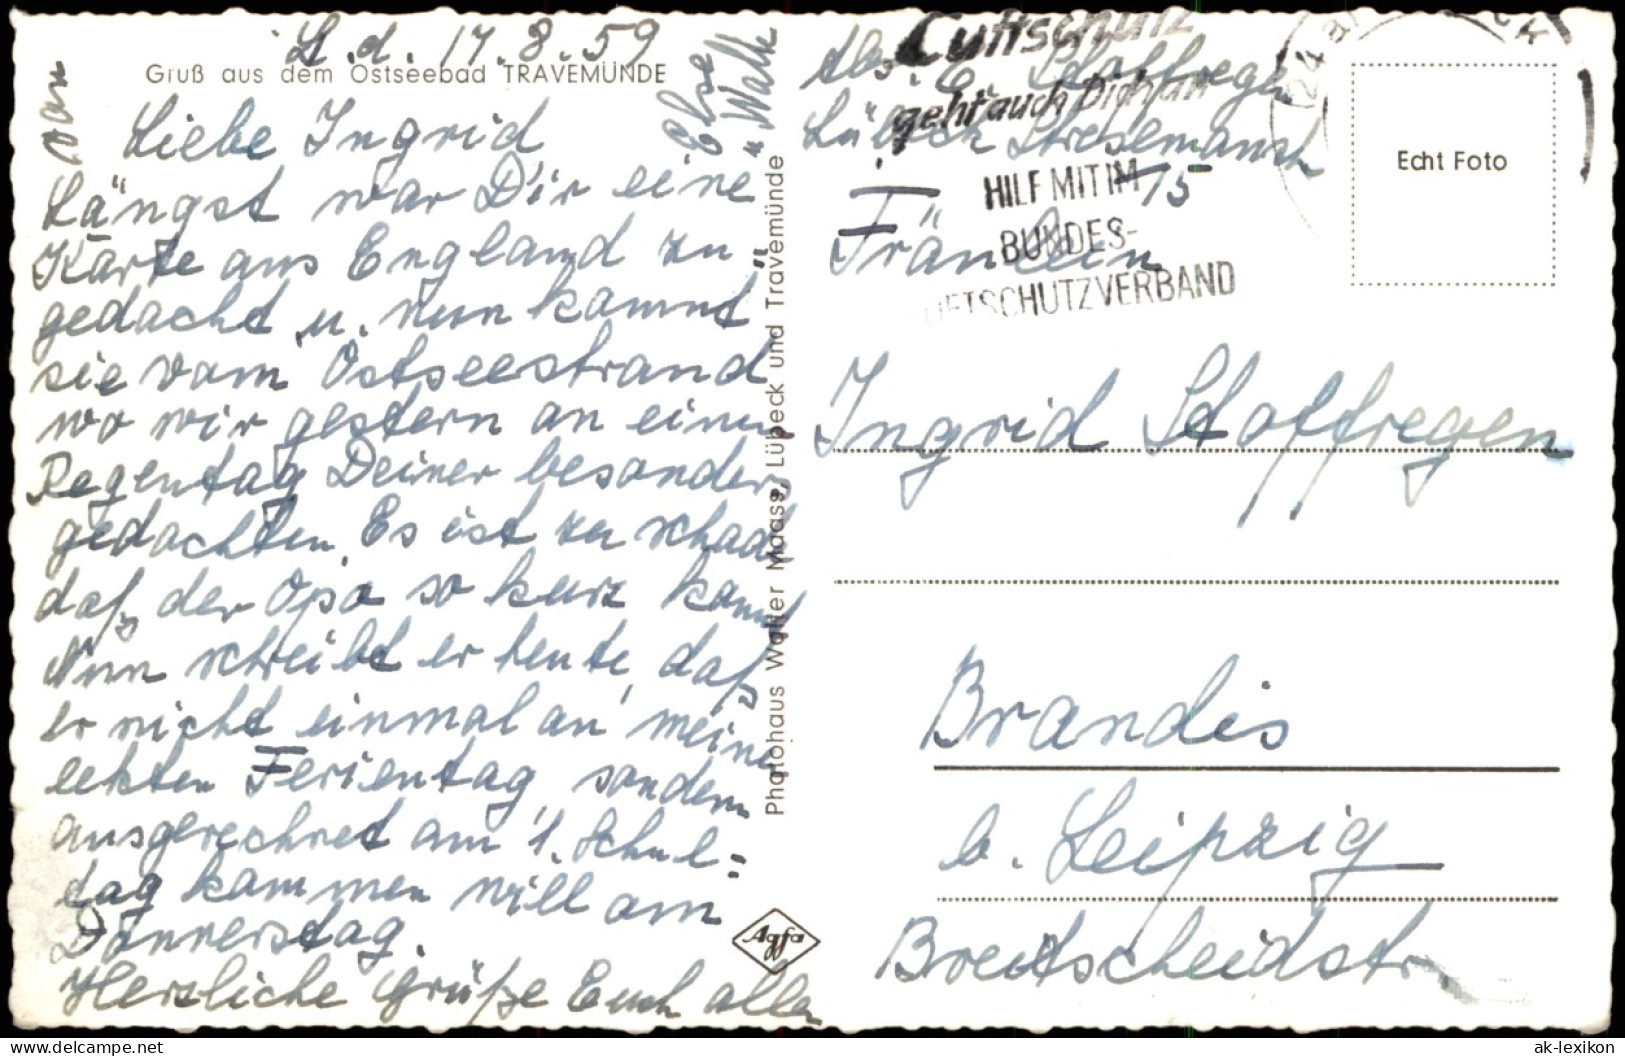 L. d. 17.8.59
Gruß aus dem Ostseebad TRAVEMÜNDE
Liebe Ingrid
Längst war Dir eine
Karte aus England zu
gedacht u. nun kommt
sie vom Ostseestrand
wo wir gestern an einem
Regentag Deiner besonders
gedachten. Es ist zu schade
daß der Opa so kurz kommt
Nun schreibt er heute, daß
er nicht einmal an meinem
letzten Ferientag, sondern
ausgerechnet am 1. Schul=
tag kommen will am
Donnerstag.
Herzliche Grüße Euch allen
von
Else
u Walt
Photohaus Walter Maass, Lübeck und Travemünde
Agfa
Luftschutz
geht auch Dich an
HILF MIT IM
BUNDES-
LUFTSCHUTZVERBAND
Abs. E. Stoffregen
Lübeck Stresemannstr
75
Echt Foto
Fräulein
Ingrid Stoffregen
Brandis
b. Leipzig
Breitscheidstr
ak-lexikon.com